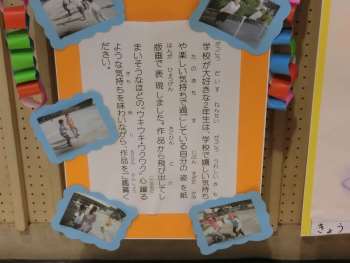 学校が大好きな2年生は、学校で嬉しい気持ち
や楽しい気持ちで過ごしている自分の姿を紙
版画で表現しました。作品から飛び出してし
まいそうなほどの「ウキウキ・ワクワク」心躍る
ような気持ちを味わいながら、作品をご鑑賞く
ださい。
きょう